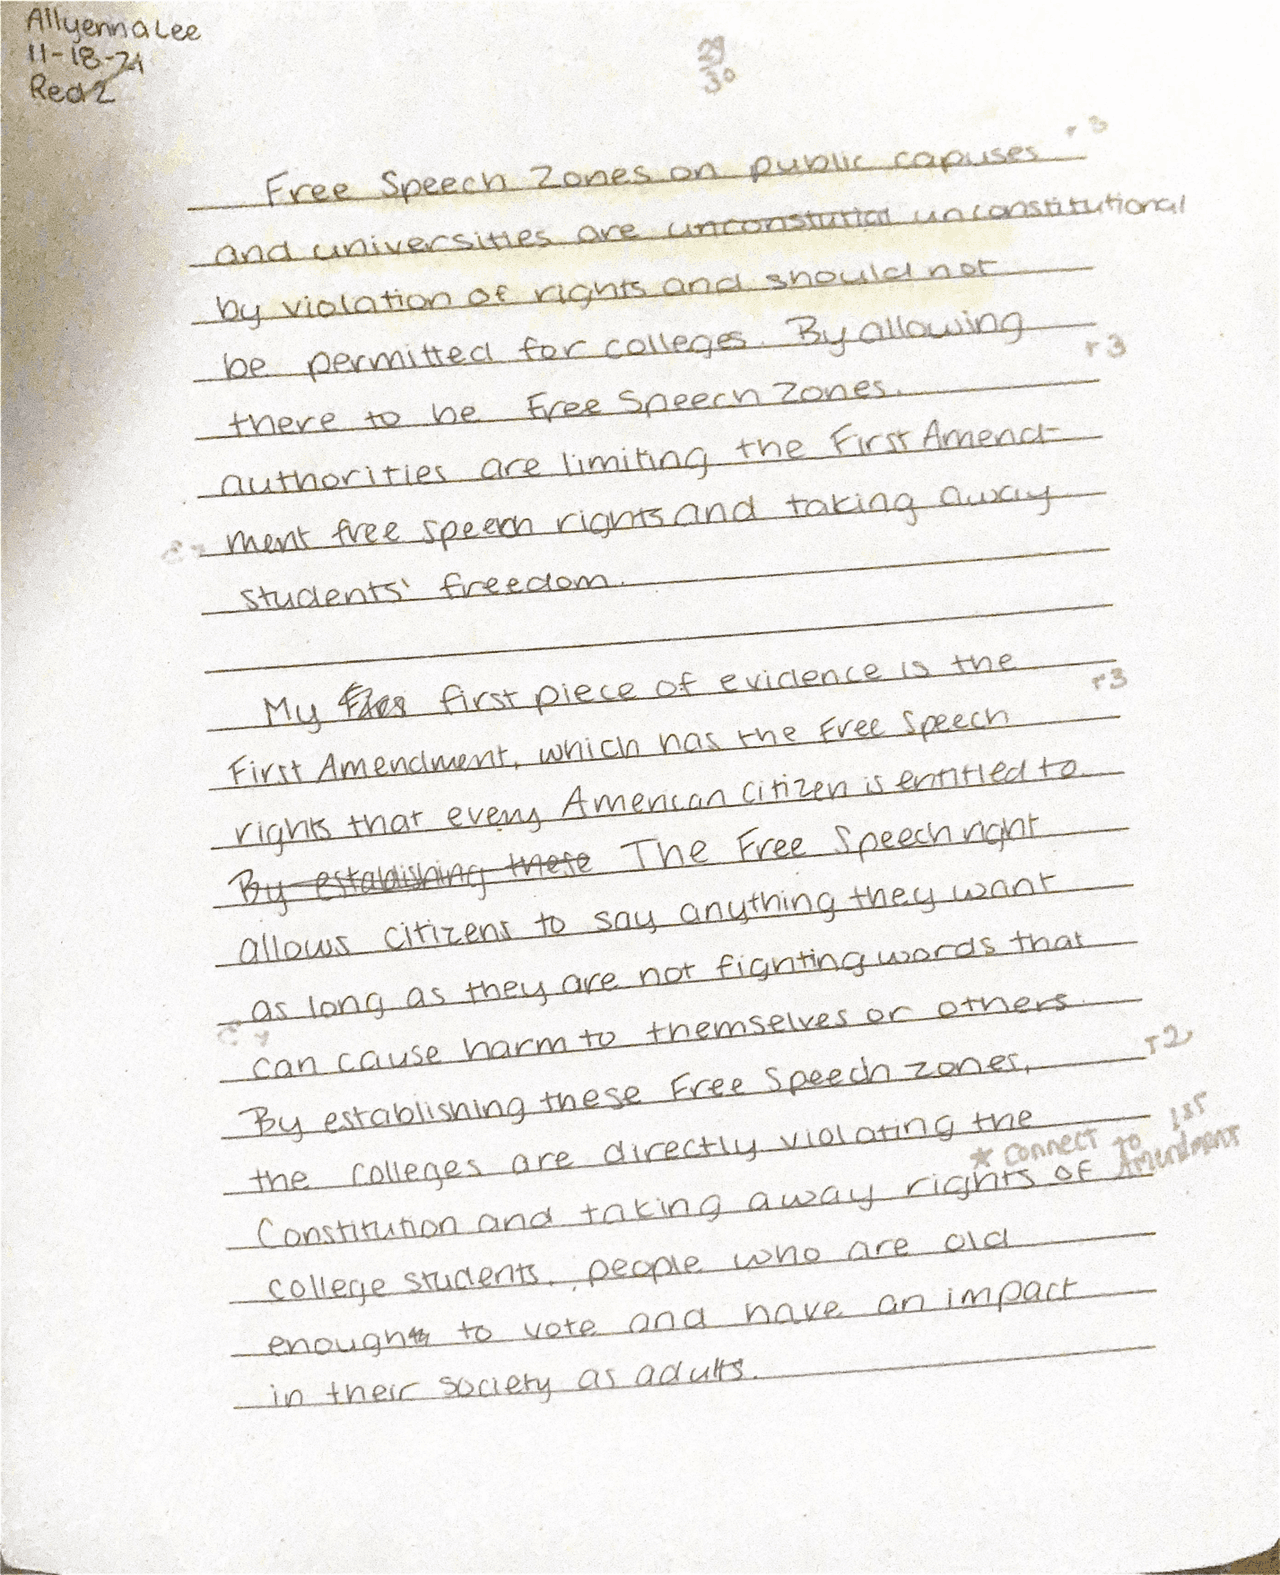 Allyenna Lee
11-18-21
Red 2
29
30
r 3
Free Speech Zones on public capuses
and universities are unconstutial unconstitutional
by violation of rights and should not
be permitted for colleges. By allowing
r3
there to be Free Speech Zones.
authorities are limiting the First Amend-
ment free speech rights and taking away
students' freedom.
My first piece of evidence is the
r3
First Amendment, which has the Free Speech
rights that every American citizen is entitled to.
By establishing these The Free Speech right
allows citizens to say anything they want
as long as they are not fighting words that
can cause harm to themselves or others.
r2
By establishing these Free Speech zones,
the colleges are directly violating the
* connect to 1st Amendment
Constitution and taking away rights of
college students. people who are old
enough to vote and have an impact
in their society as adults.